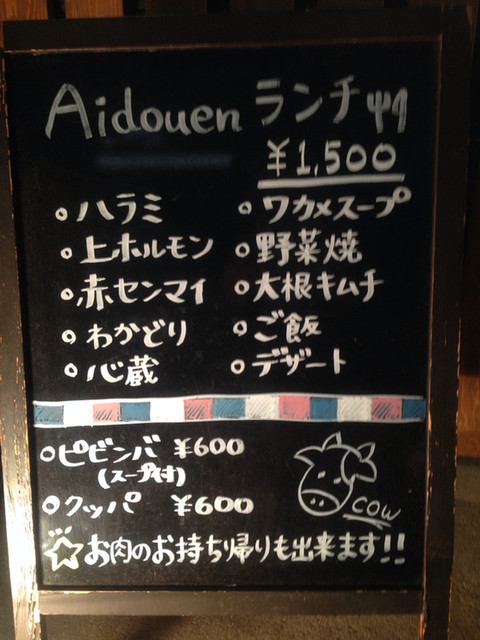 Aidouen ランチ
¥1,500
○ハラミ
○上ホルモン
○赤センマイ
○わかどり
○心蔵
○ワカメスープ
○野菜焼
○大根キムチ
○ご飯
○デザート
○ピビンバ ¥600
(スープ付)
○クッパ ¥600
COW
☆お肉のお持ち帰りも出来ます!!